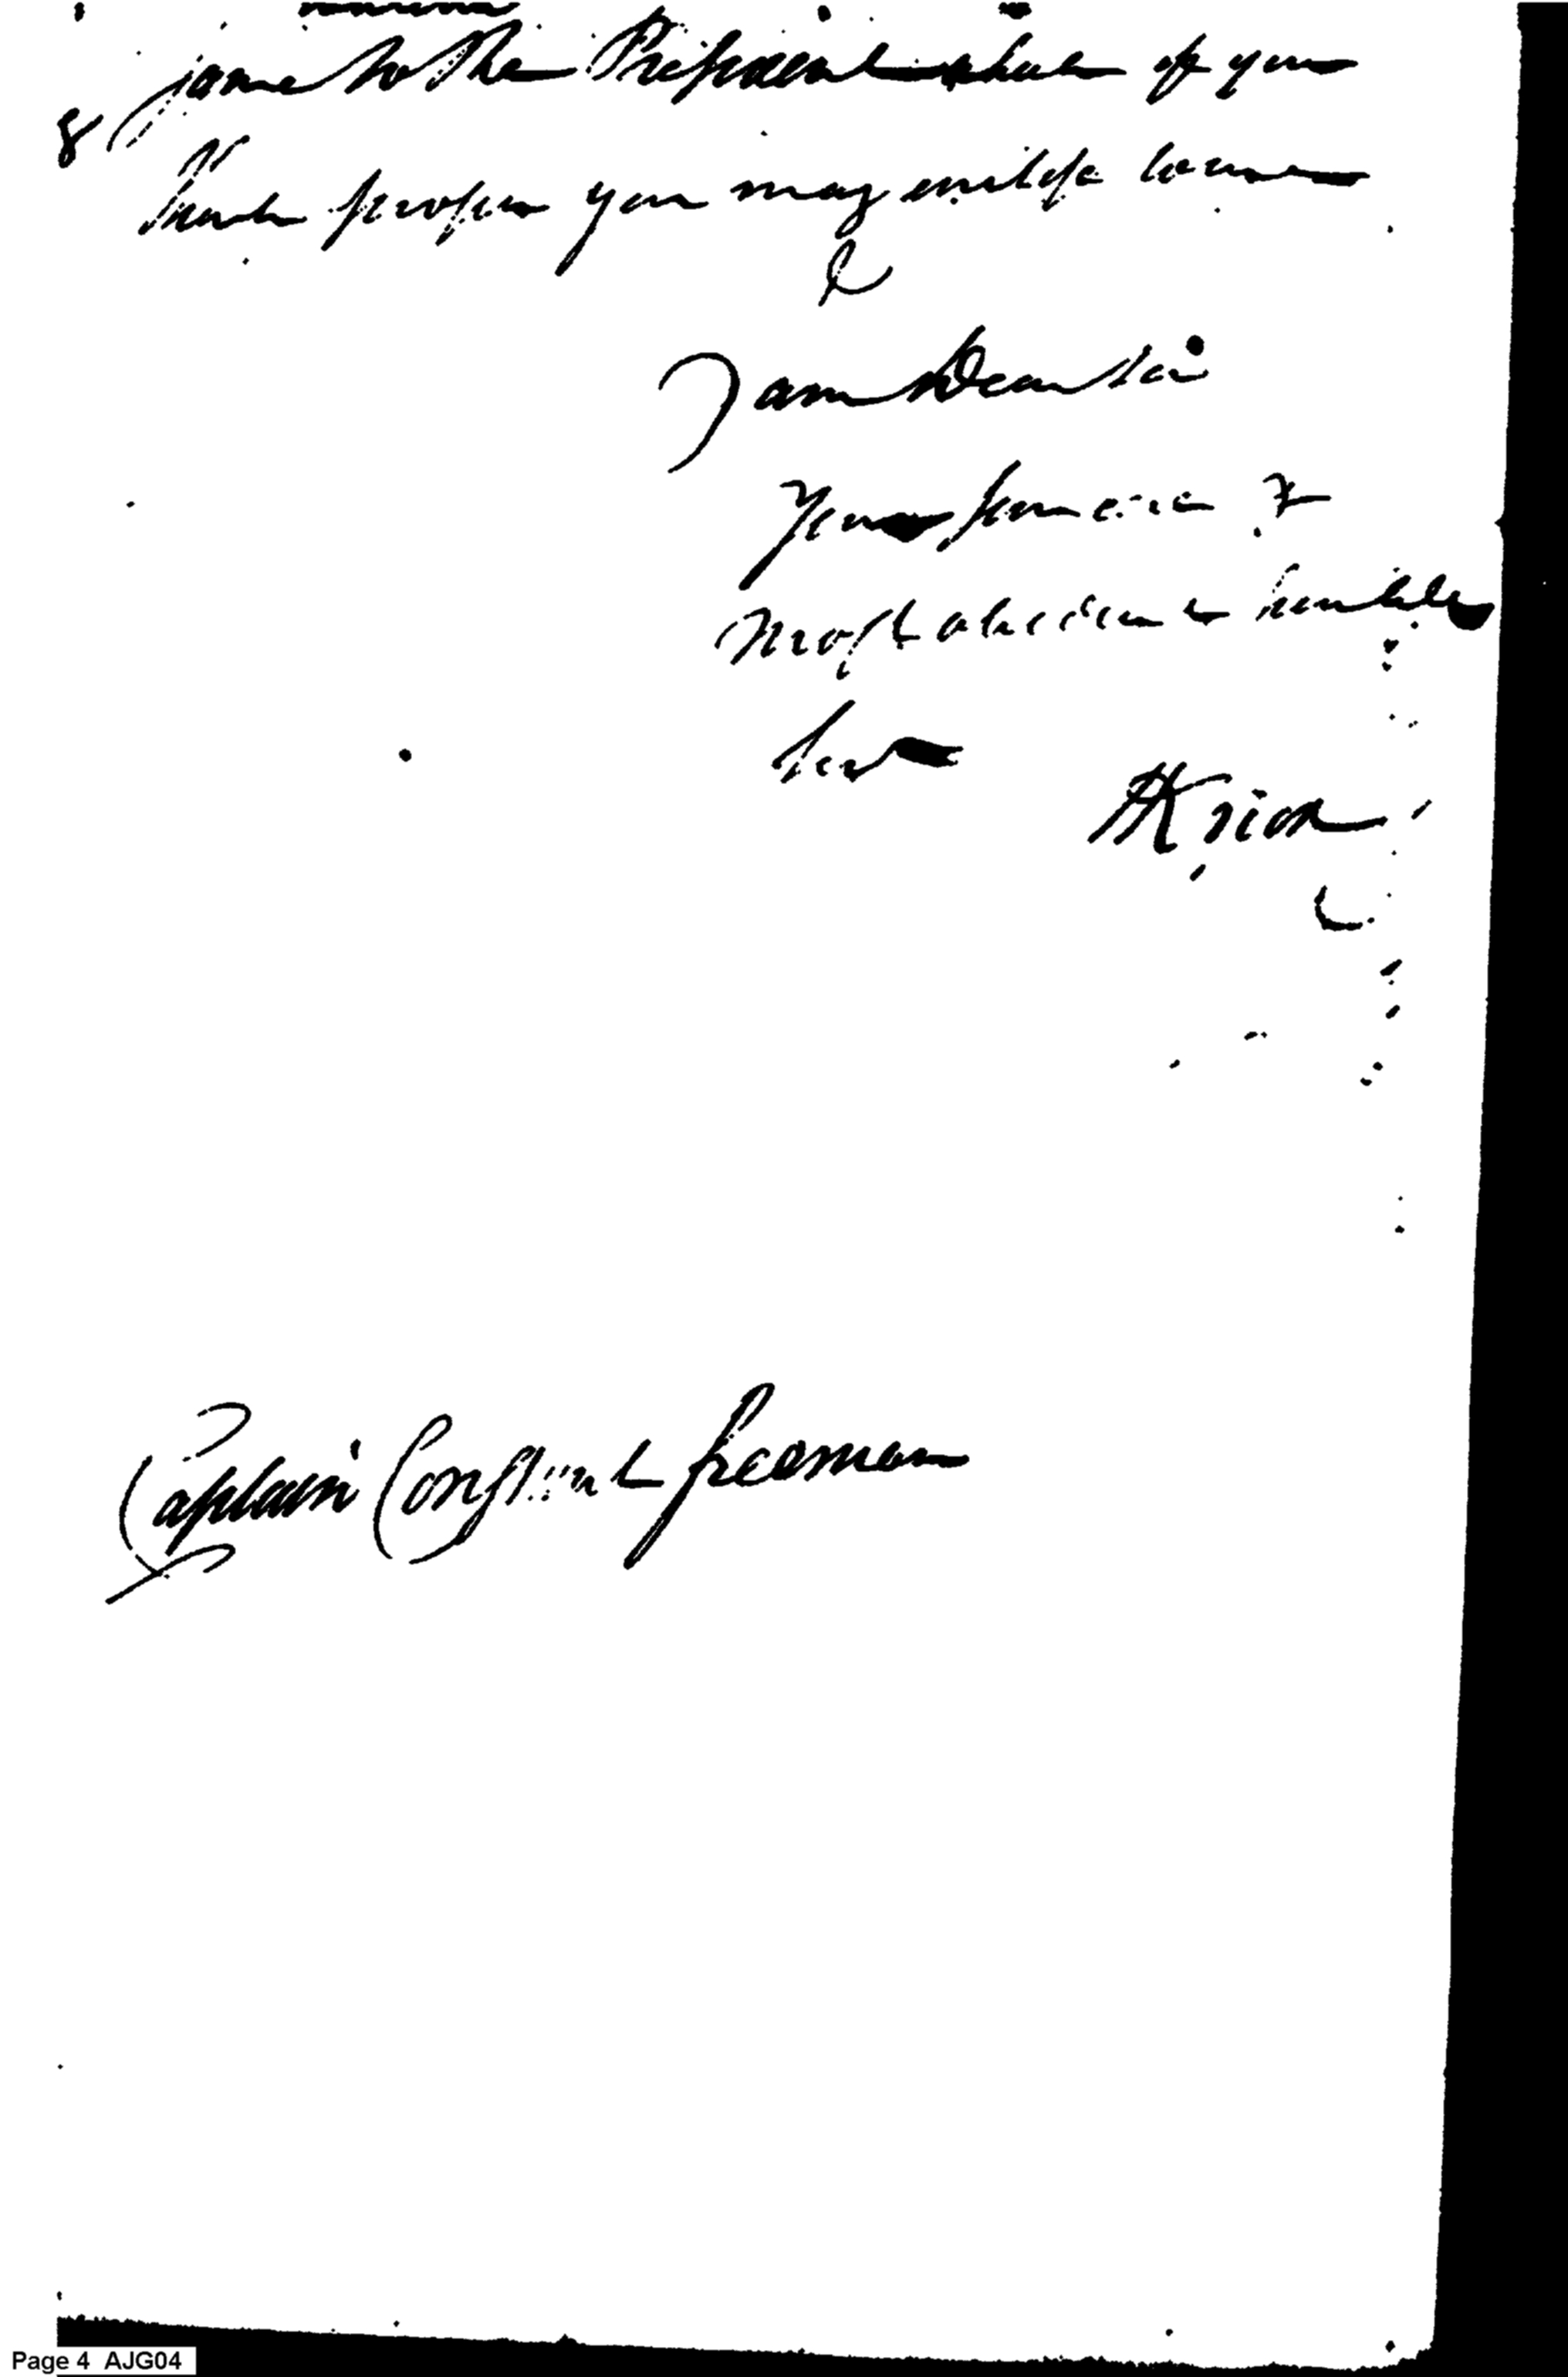 8 same to the President where if you
think proper you may enclose
I am Dear Sir
Your
Most obedient & humble
Servt
HKnox
Captain Constant Freeman
Page 4 AJG04